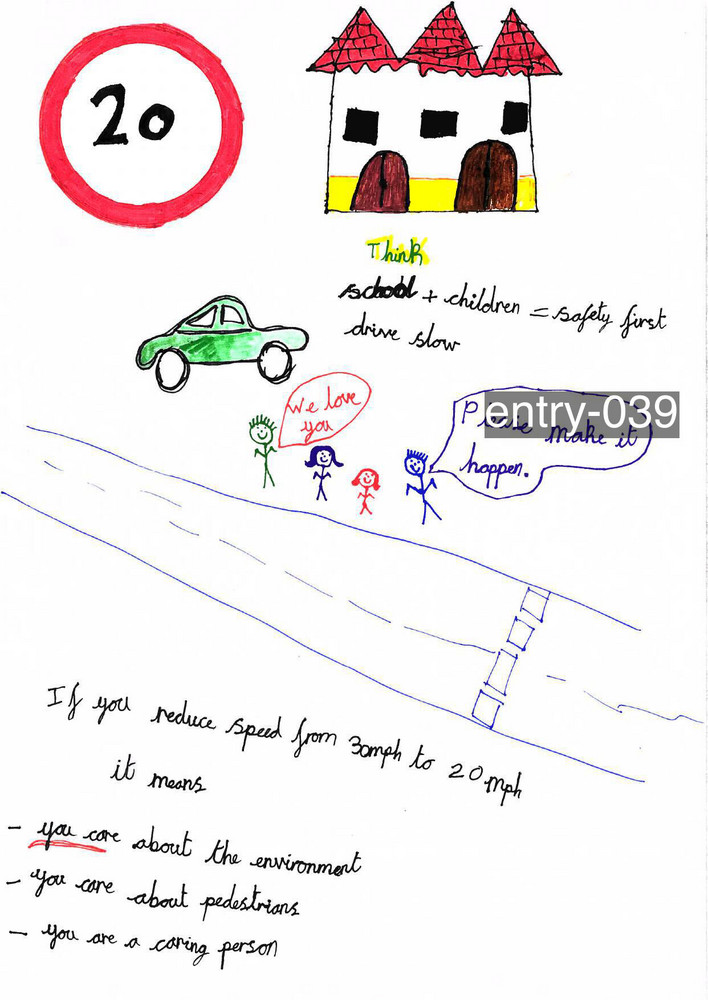 20
Think
school + children = safety first
drive slow
We love
you
Please make it
happen.
entry-039
If you reduce speed from 30mph to 20 mph
it means
- you care about the environment
- you care about pedestrians
- you are a caring person